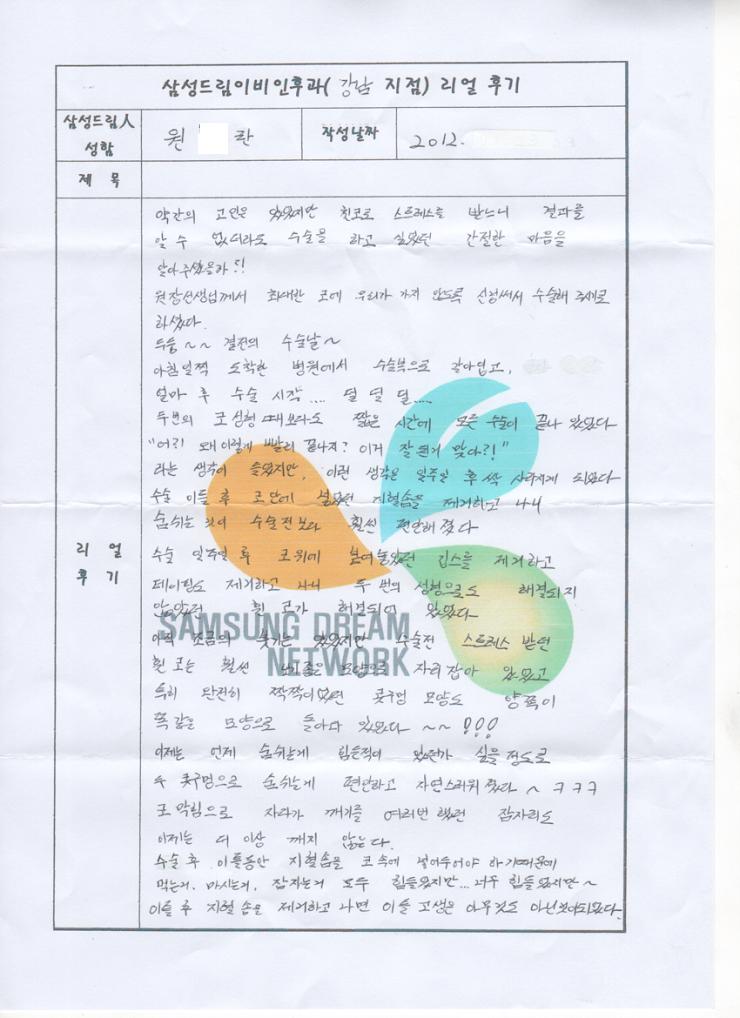 삼성드림이비인후과( 강남 지점) 리얼 후기
삼성드림人
성함
원 란
작성날짜
2012.
제 목
리 얼
후 기
약간의 고민은 있었지만 휜코로 스트레스를 받느니 결과를
알 수 없더라도 수술을 하고 싶었던 간절한 마음을
알아주셨을까?!
원장선생님께서 최대한 코에 무리가 가지 않도록 신경써서 수술해 주셨다.
두둥~~ 결전의 수술날~
아침일찍 도착한 병원에서 수술복으로 갈아입고,
얼마 후 수술 시작.... 덜 덜 덜.....
두번의 코 성형 때보다도 짧은 시간에 모든 수술이 끝나 있었다
"어?! 왜이렇게 빨리 끝나지? 이거 잘 된거 맞아?!"
라는 생각이 들었지만, 이런 생각은 일주일 후 싹 사라지게 되었다
수술 이틀 후 코안에 넣었던 지혈솜을 제거하고 나니
숨쉬는 것이 수술전보다 훨씬 편안해졌다
수술 일주일 후 코위에 붙여놓았던 깁스를 제거하고
테이핑도 제거하고 나니 두 번의 성형으로도 해결되지
않았던 휜 코가 해결되어 있었다
아직 조금의 붓기는 있었지만 수술전 스트레스 받던
휜 코는 훨씬 보기좋은 모양으로 자리 잡아 있었고
특히 완전히 짝짝이였던 콧구멍 모양도 양쪽이
똑같은 모양으로 돌아와 있었다 ~~ !!!
이제는 언제 숨쉬는게 힘든적이 있었던가 싶을 정도로
두 콧구멍으로 숨쉬는게 편안하고 자연스러워 졌다 ~ ㅋㅋㅋ
코 막힘으로 자다가 깨기를 여러번 했던 잠자리도
이제는 더 이상 깨지 않는다.
수술 후 이틀동안 지혈솜을 코속에 넣어두어야 하기때문에
먹는거, 마시는거, 잠자는거 모두 힘들었지만... 너무 힘들었지만~
이틀 후 지혈 솜을 제거하고 나면 이틀 고생은 아무것도 아닌것이되었다.
SAMSUNG DREAM
NETWORK